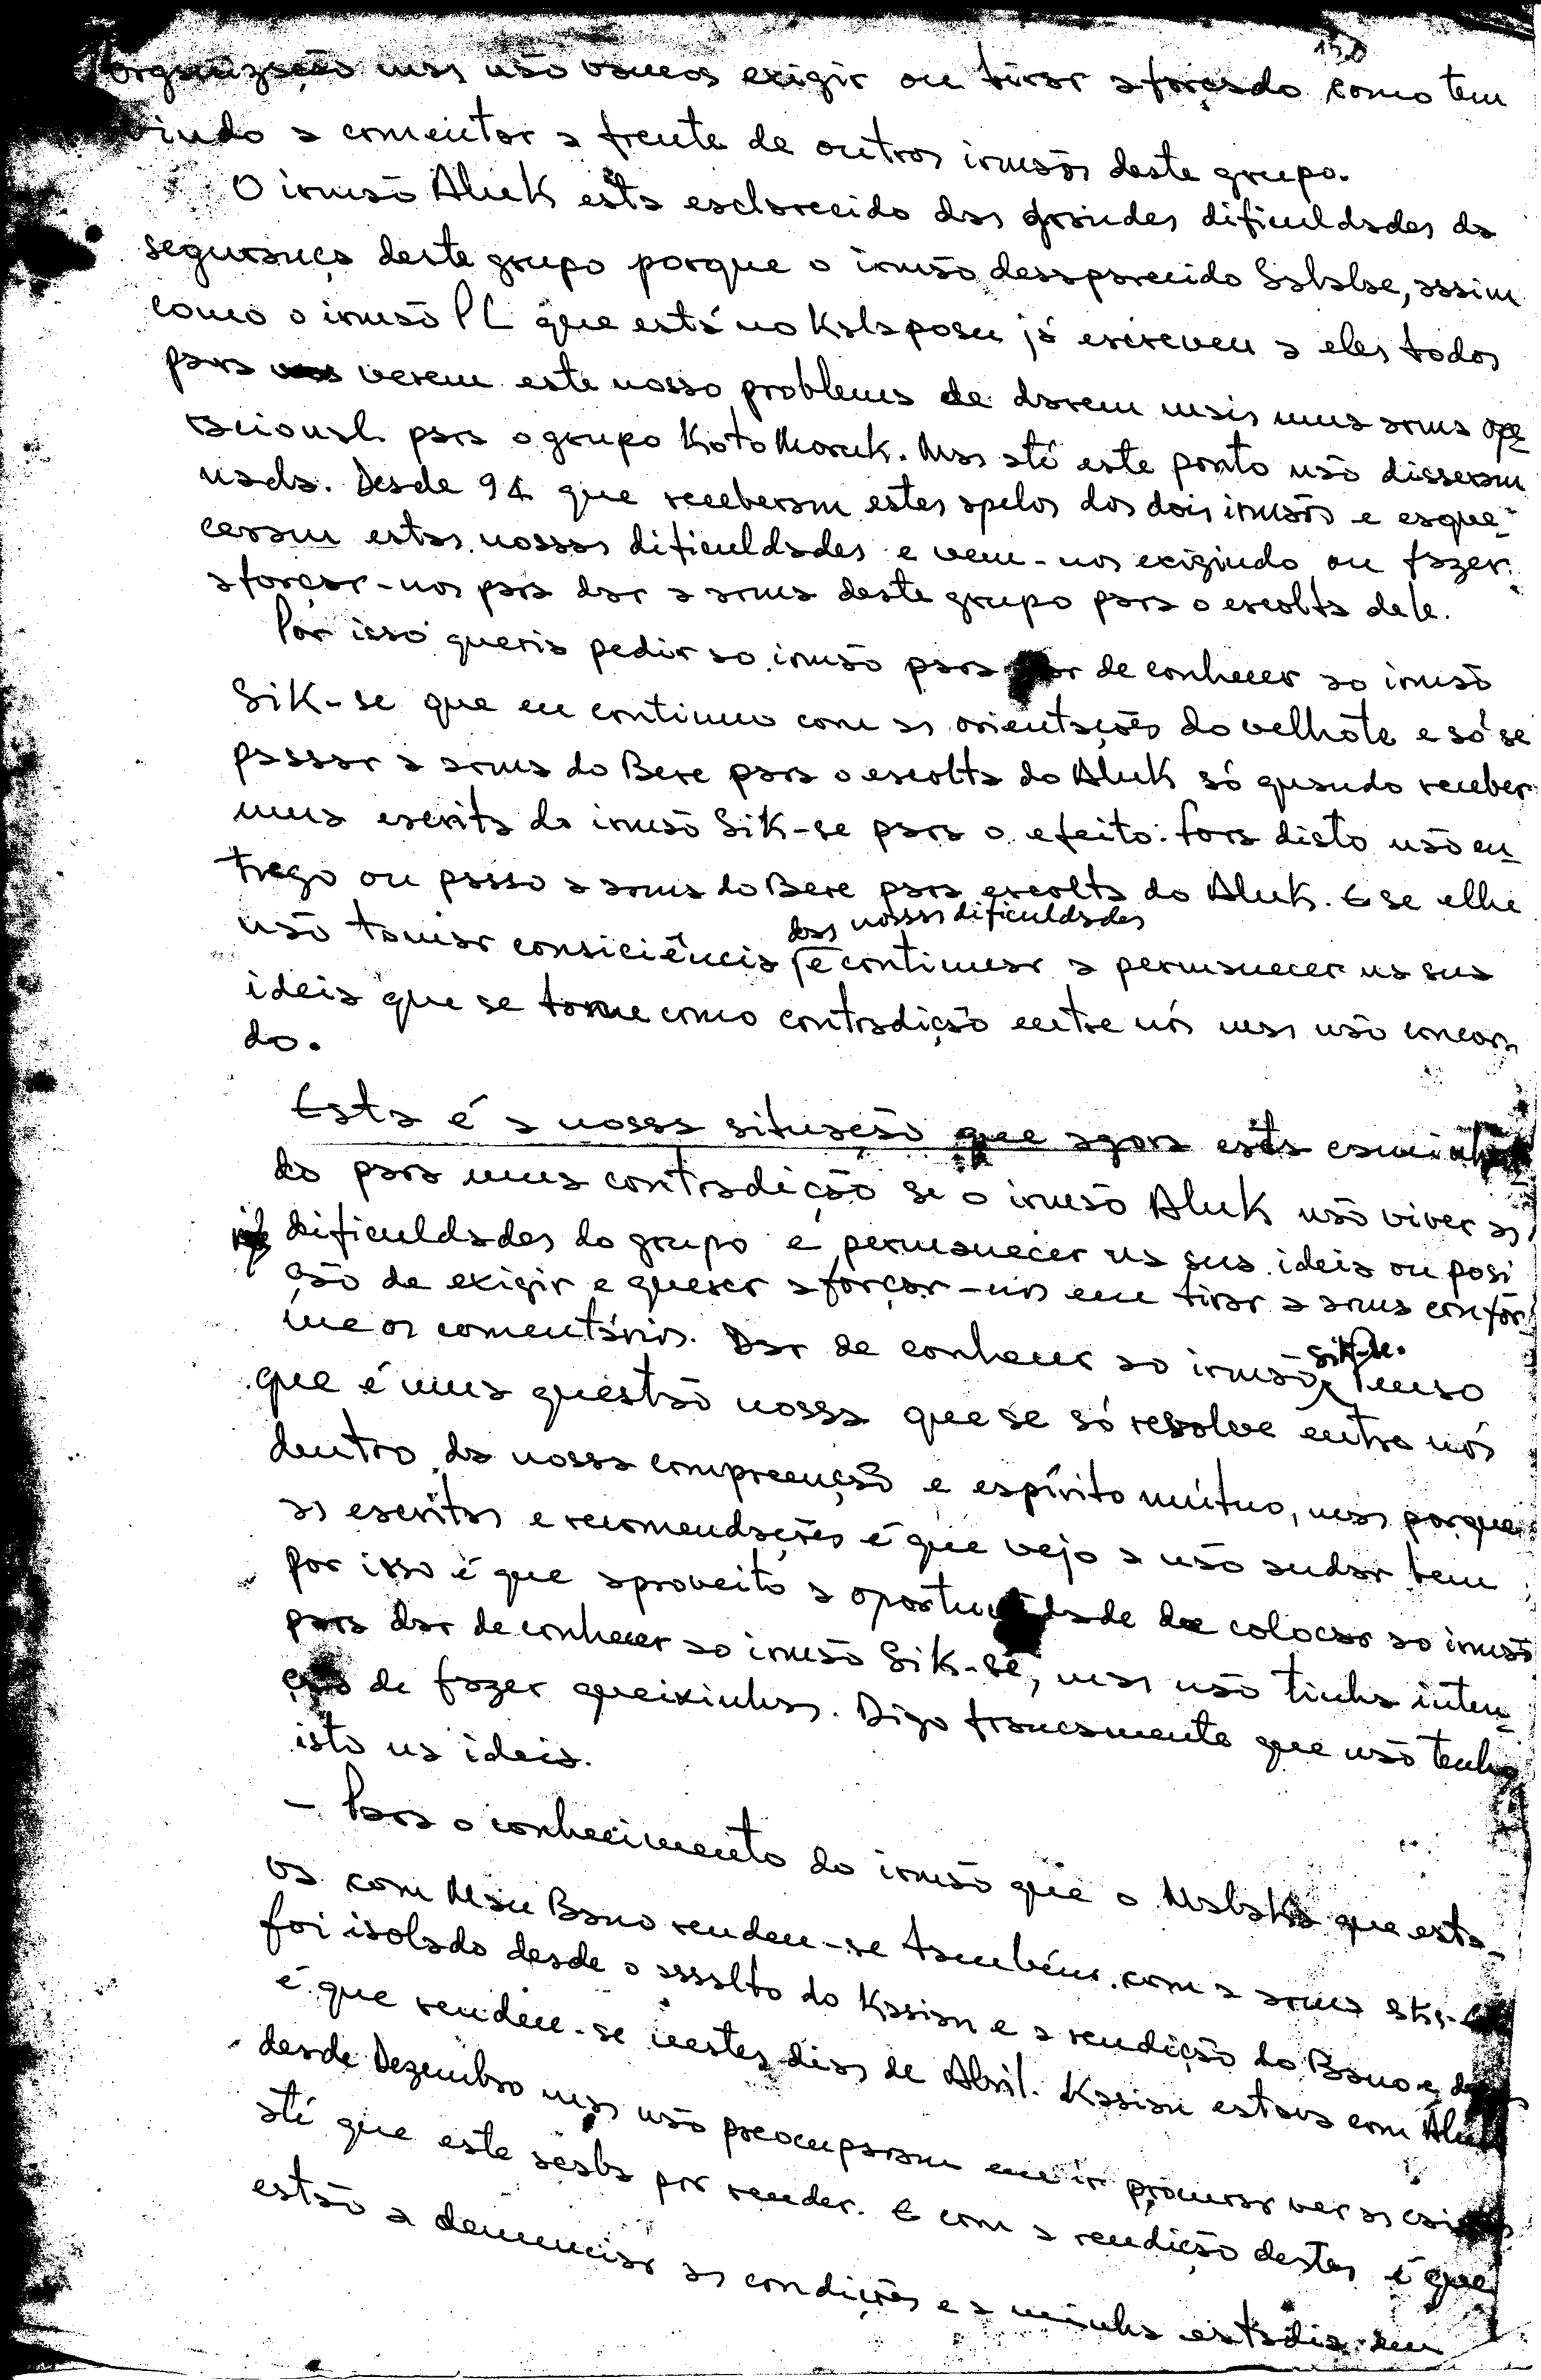 150
organização mas não vamos exigir ou tirar aforçado como tem
vindo a comentar a frente de outros irmãos deste grupo.
O irmão Aluk esta esclarecido das grandes dificuldades da
segurança deste grupo porque o irmão desaparecido Sabalae, assim
como o irmão PL que está no Kalaposu já escreveu a eles todos
para verem este nosso problema de darem mais uma arma ope
racional para o grupo Koto Moruk. Mas até este ponto não disseram
nada. Desde 94 que receberam estes apelos dos dois irmãos e esque-
ceram estas nossas dificuldades e vem-nos exigindo ou fazer
aforçar-nos para dar a arma deste grupo para o escolta dele.
Por isso queria pedir ao irmão para de conhecer ao irmão
Sik-se que eu continuo com as orientações do velhote e só se
passar a arma do Bere para o escolta do Aluk só quando receber
uma escrita do irmão Sik-se para o efeito. Fora disto não en-
trego ou passo a arma do Bere para escolta do Aluk. E se elhe
não tomar consiciência das nossas dificuldades e continuar a permanecer na sua
ideia que se torne como contradição entre nós mas não concor-
do.
Esta é a nossa situação que agora esta caminha
do para uma contradição se o irmão Aluk não viver as
dificuldades do grupo e permanecer na sua ideia ou posi
ção de exigir e querer aforçar-nos em tirar a arma confor
me os comentários. Dar de conhecer ao irmão Sik-se.
que é uma questão nossa que se só resolve entre nós
dentro da nossa compreenção e espírito mútuo, mas porque
as escritas e recomendações é que vejo a não andar bem
por isso é que aproveito a oportunidade de colocar ao irmão
para dar de conhecer ao irmão Sik-se, mas não tinha inten-
ção de fazer queixinhas. Digo francamente que não tenho
isto na ideia.
- Para o conhecimento do irmão que o Malaka que esta-
va com Mau Bano rendeu-se também com a arma
foi isolado desde o assalto do Kasian e a rendição do Bano e
é que rendeu-se nestes dias de Abril. Kasian estava com Aluk
desde Dezembro mas não preocuparam em ir procurar ver as
até que este acaba por render. E com a rendição destes é que
estão a denunciar as condições e a minha estadia em